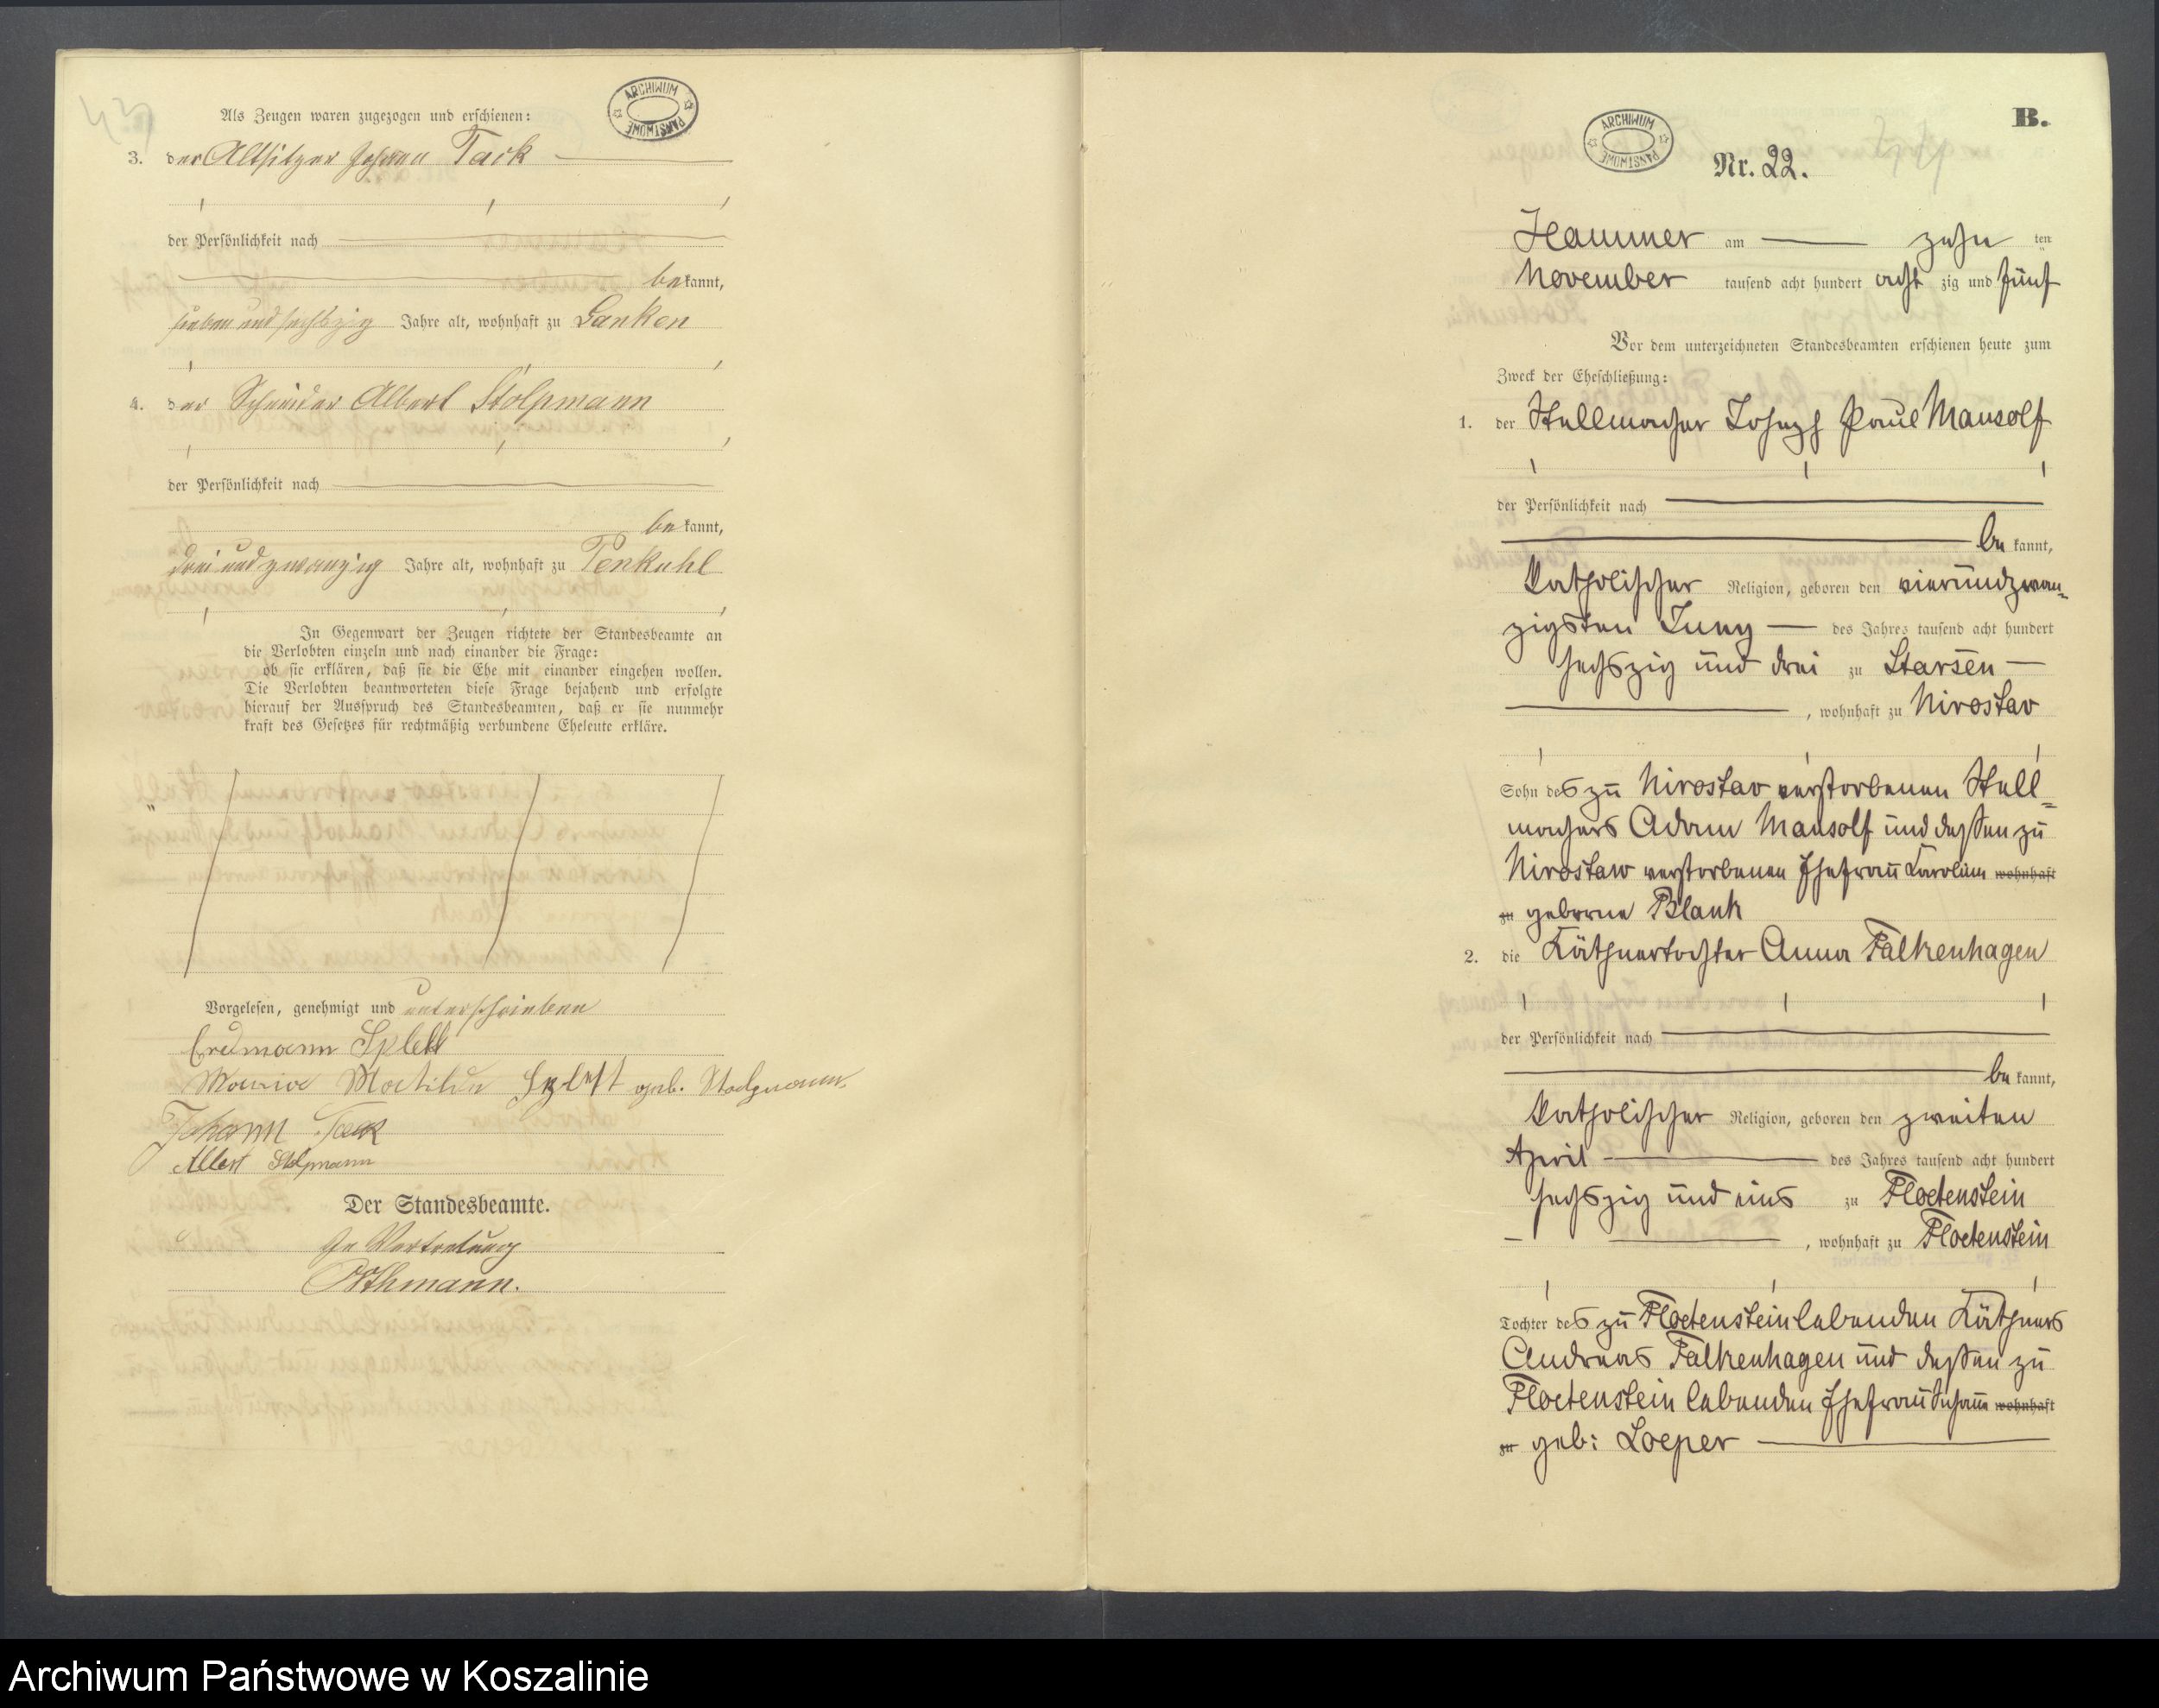 Als Zeugen waren zugezogen und erschienen:
ARCHIWUM PAŃSTWOWE
3. der Altsitzer Johann Tack
der Persönlichkeit nach
bekannt,
sieben und sechszig Jahre alt, wohnhaft zu Sanken
4. der Schneider Albert Stolpmann
der Persönlichkeit nach
bekannt,
drei und zwanzig Jahre alt, wohnhaft zu Penkuhl
In Gegenwart der Zeugen richtete der Standesbeamte an
die Verlobten einzeln und nach einander die Frage:
ob sie erklären, daß sie die Ehe mit einander eingehen wollen.
Die Verlobten beantworteten diese Frage bejahend und erfolgte
hierauf der Ausspruch des Standesbeamten, daß er sie nunmehr
kraft des Gesetzes für rechtmäßig verbundene Eheleute erkläre.
Vorgelesen, genehmigt und unterschrieben
Erdmann Splett
Maria Matilde Splett geb. Stolpmann
Johann Tack
Albert Stolpmann
Der Standesbeamte.
In Vertretung
Othmann.
B.
ARCHIWUM PAŃSTWOWE
Nr. 22.
Hammer am zehn ten
November tausend acht hundert acht zig und fünf
Vor dem unterzeichneten Standesbeamten erschienen heute zum
Zweck der Eheschließung:
1. der Stellmacher Joseph Paul Mausolf
der Persönlichkeit nach
bekannt,
katholischer Religion, geboren den vierundzwan=
zigsten Juny des Jahres tausend acht hundert
sechszig und drei zu Starsen
, wohnhaft zu Nirostav
Sohn des zu Nirostav verstorbenen Stell=
machers Adam Mausolf und dessen zu
Nirostaw verstorbenen Ehefrau Karoline wohnhaft
zu geborne Blank
2. die Käthnertochter Anna Falkenhagen
der Persönlichkeit nach
bekannt,
katholischer Religion, geboren den zweiten
April des Jahres tausend acht hundert
sechszig und eins zu Floetenstein
, wohnhaft zu Floetenstein
Tochter des zu Floetenstein lebenden Käthners
Andreas Falkenhagen und dessen zu
Floetenstein lebenden Ehefrau Susanne wohnhaft
zu geb: Loeper
Archiwum Państwowe w Koszalinie